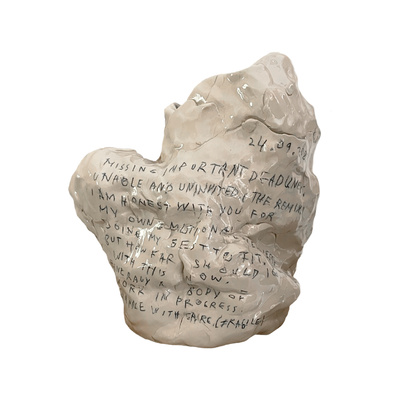 24.09.
MISSING IMPORTANT DEADLINE
UNABLE AND UNINVITED, THE
I AM HONEST WITH YOU FOR
MY OWN EMOTION
DOING MY BEST TO FIT IN
BUT HOW FAR SHOULD I
WITH THIS NOW.
BODY OF
WORK IN PROGRESS
WITH CARE, (FRAGILE)